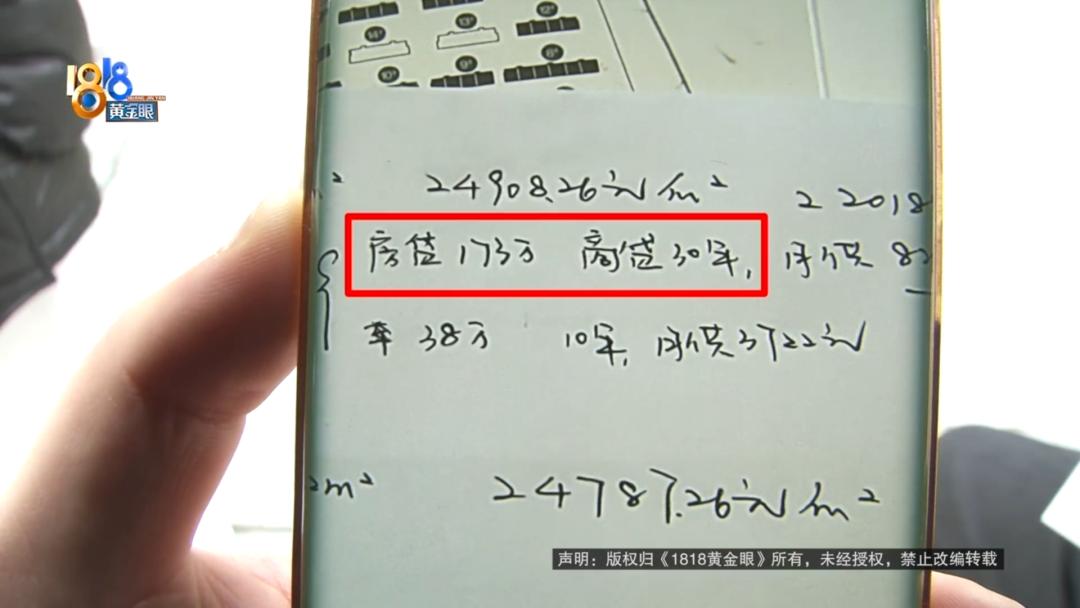 1818
黄金眼
14#
13#
12#
10#
9#
8#
m²
24908.26元/m²
2 2018
房贷173万 商贷30年,月供82
车38万 10年,月供3722元
2m²
24787.26元/m²
声明：版权归《1818黄金眼》所有，未经授权，禁止改编转载